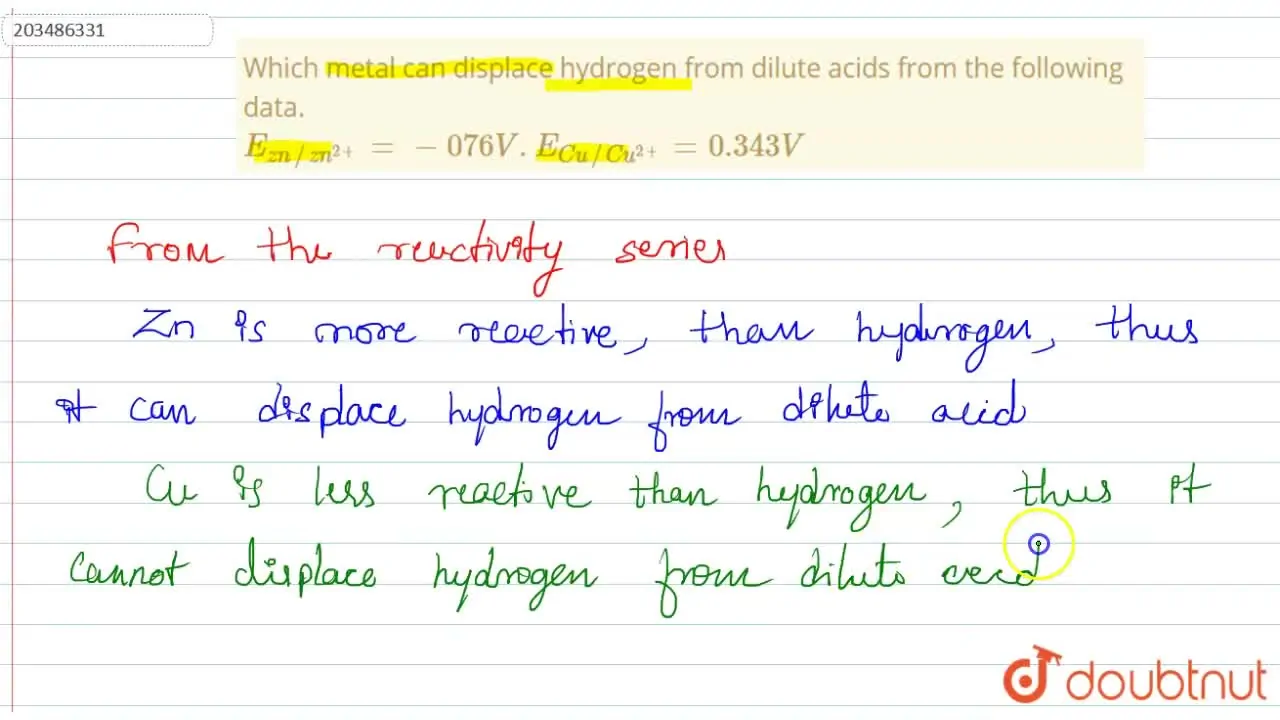 203486331
Which metal can displace hydrogen from dilute acids from the following
data.
E_{zn/zn^{2+}} = - 076V. E_{Cu/Cu^{2+}} = 0.343V
From the reactivity series
Zn is more reactive, than hydrogen, thus
it can displace hydrogen from dilute acid
Cu is less reactive than hydrogen, thus it
cannot displace hydrogen from dilute acid
doubtnut